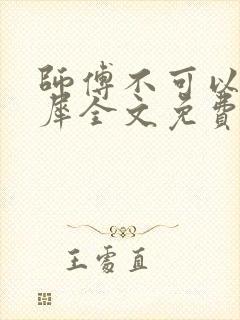 師傅不可以
犀全文免費
王雩直